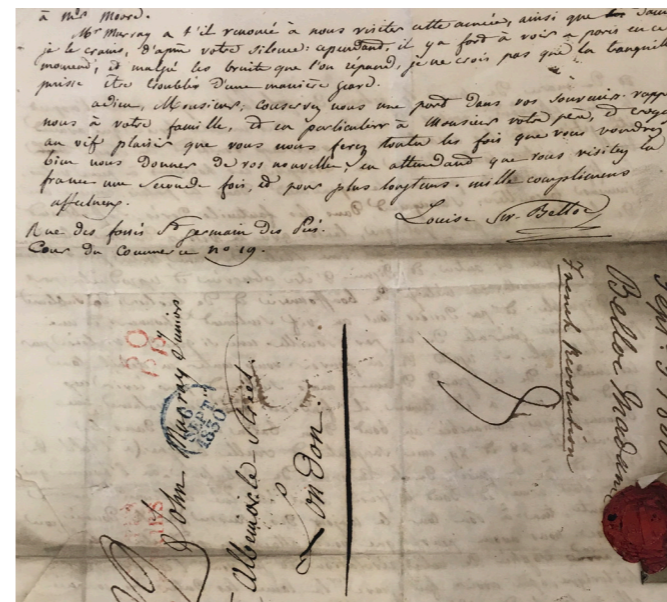 à Mrs Moore.
Mr Murray a t'il renoncé à nous visiter cette année, ainsi que
je le crains, d'après votre silence: cependant, il y a fort à voir à paris en ce
moment, et malgré les bruits que l'on répand, je ne crois pas que la tranquill
puisse être troublée d'une manière grave.
adieu, Monsieur, conservez nous une part dans vos souvenirs. rappe
nous à votre famille, et en particulier à Monsieur votre père, et croye
au vif plaisir que vous nous ferez toutes les fois que vous voudrez
bien nous donner de vos nouvelles, en attendant que vous visitiez la
france une seconde fois, et pour plus longtems. mille complimens
affectueux.
Louise Sw. Belloc
Rue des fossés St germain des Prés.
Cour du Commerce no 19.
John Murray Junior
Albemarle Street.
London.
SEPT
1830
French Revolution
Belloc Madame
Sept.